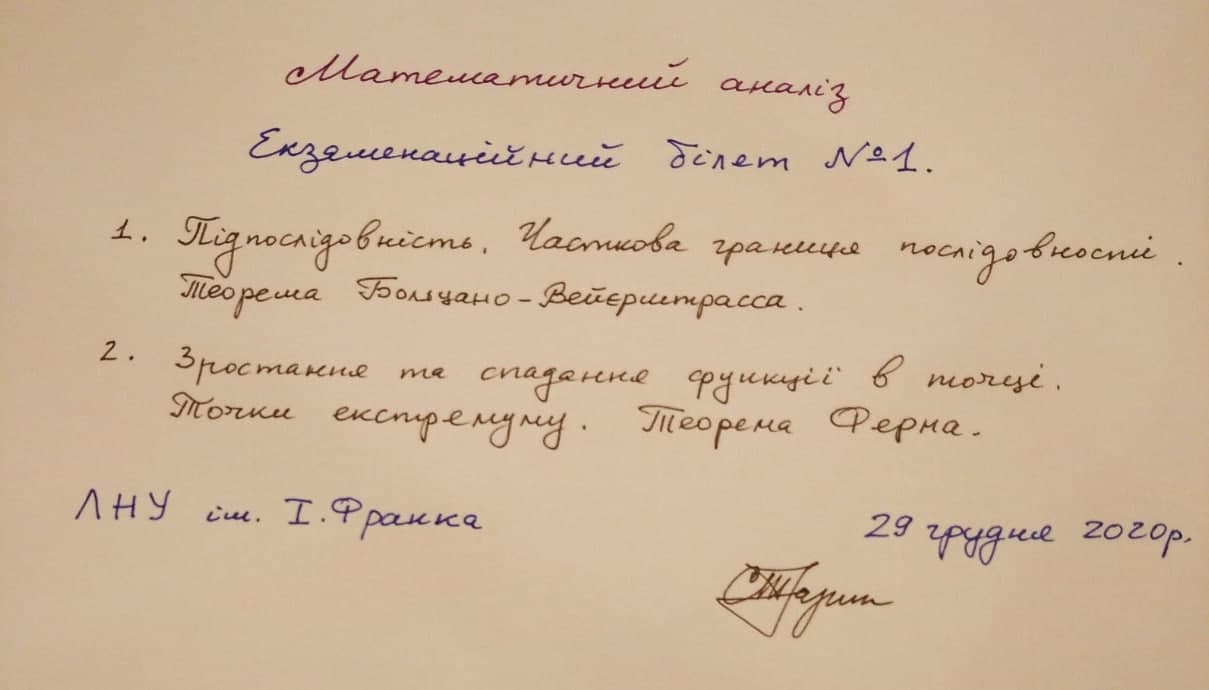 Математичний аналіз
Екзаменаційний білет №1.
1. Підпослідовність. Часткова границя послідовності.
Теорема Больцано-Вейєрштрасса.
2. Зростання та спадання функції в точці.
Точки екстремуму. Теорема Ферма.
ЛНУ ім. І.Франка
29 грудня 2020р.